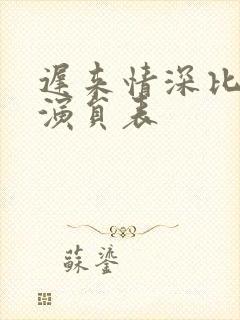 遲来情深比
演員表
蘇鎏